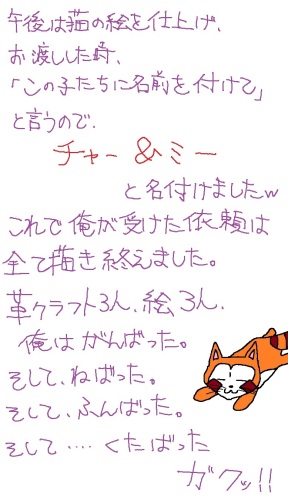 午後は猫の絵を仕上げ、
お渡しした時、
「この子たちに名前を付けて」
と言うので、
チャー＆ミー
と名付けましたw
これで俺が受けた依頼は
全て描き終えました。
革クラフト3人、絵3人、
俺はがんばった。
そして、ねばった。
そして、ふんばった。
そして‥‥くたばった
ガクッ!!